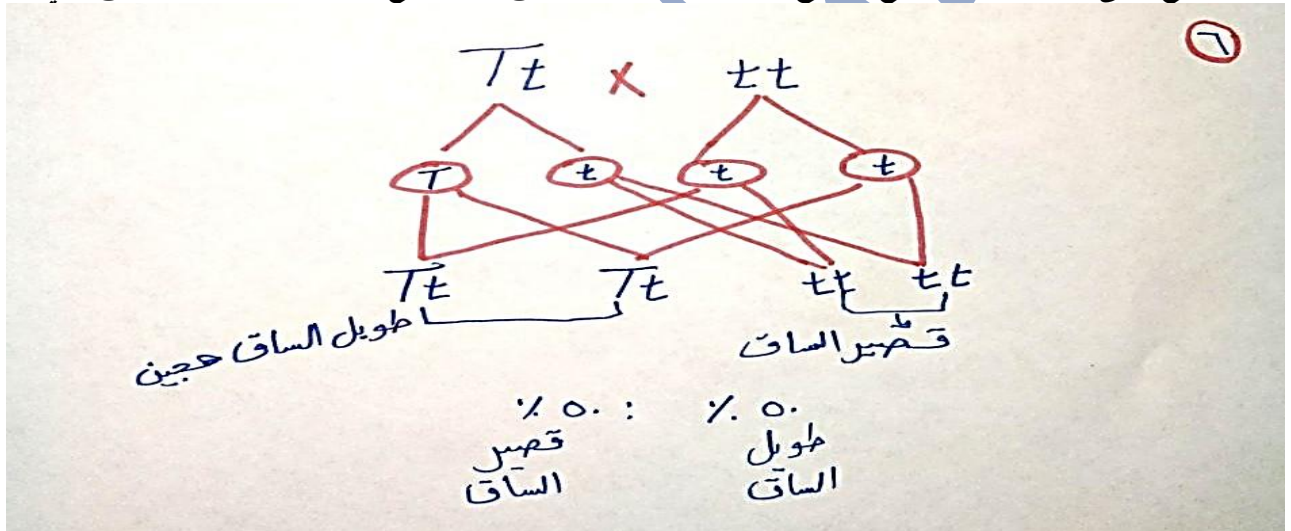 ٦
Tt x tt
T t t t
Tt Tt tt tt
طويل الساق هجين
قصير الساق
٥٠ % : ٥٠ %
طويل قصير
الساق الساق